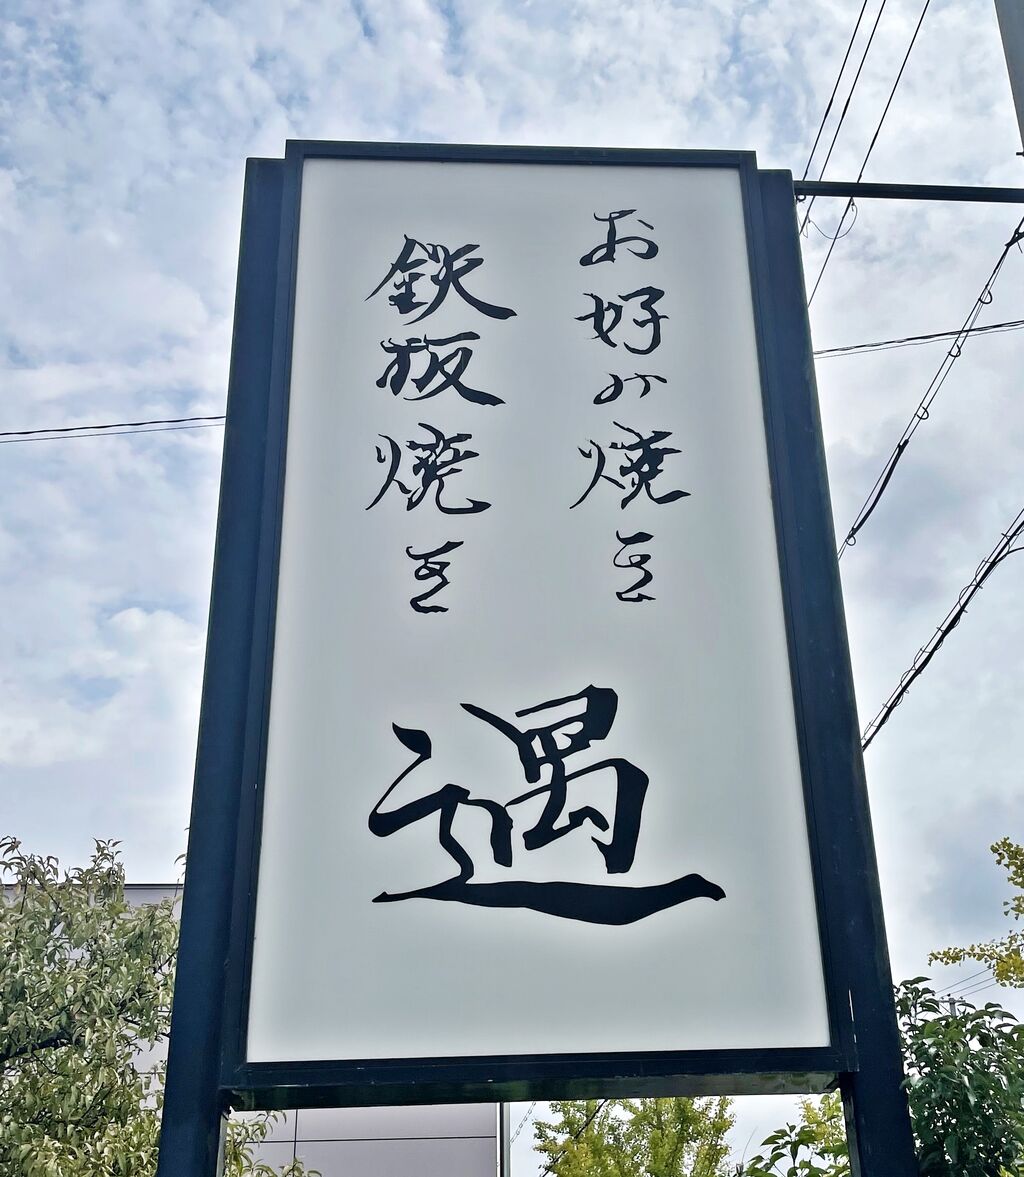 お好み焼き
鉄板焼き
遇